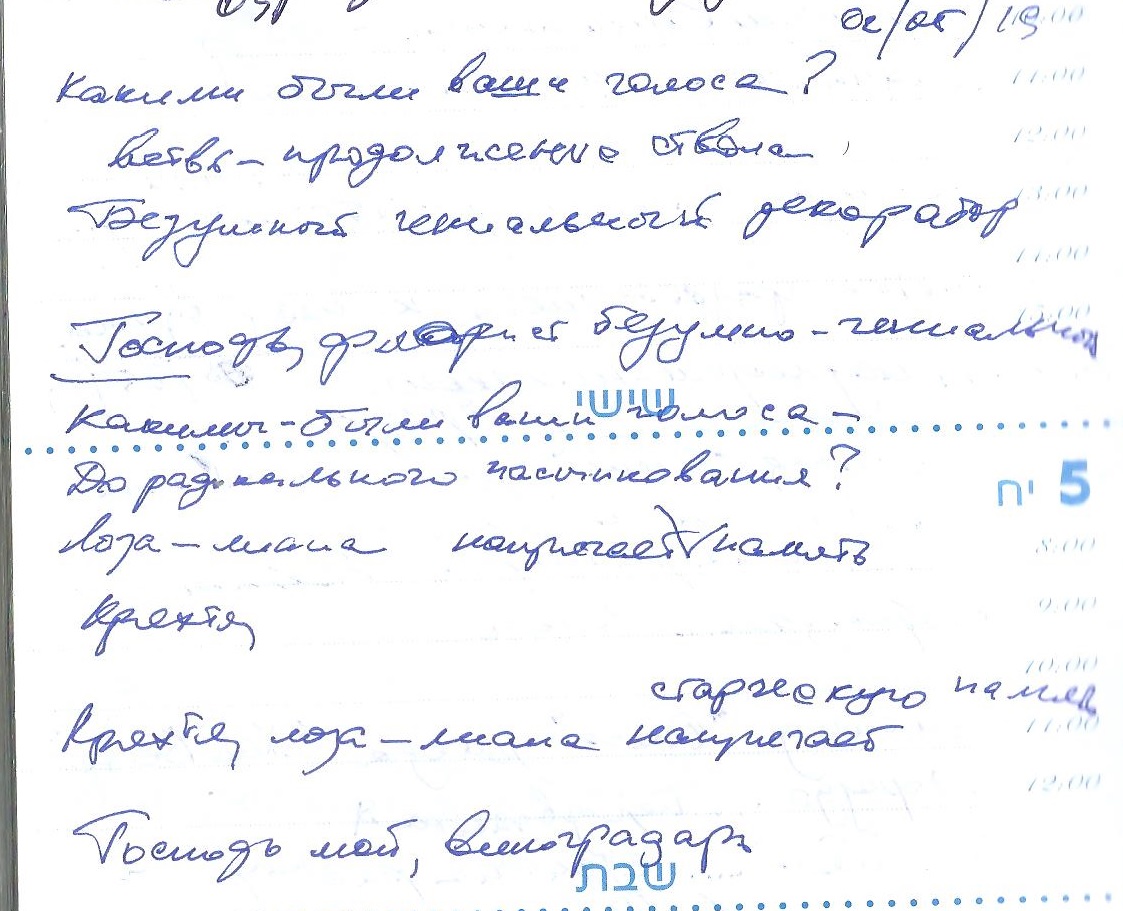 Какими были ваши голоса?
ветвь – продолжение ствола
Безумный гениальный декоратор
Господь, флорист безумно-гениальный
шиши
Какими-были ваши голоса –
До радикального пасынкования?
5 יח
Лоза – лиана напрягает память
8:00
Кряхтя,
9:00
10:00
старческую память
11:00
Кряхтя, лоза – лиана напрягает
12:00
Господь мой, виноградарь
שבת